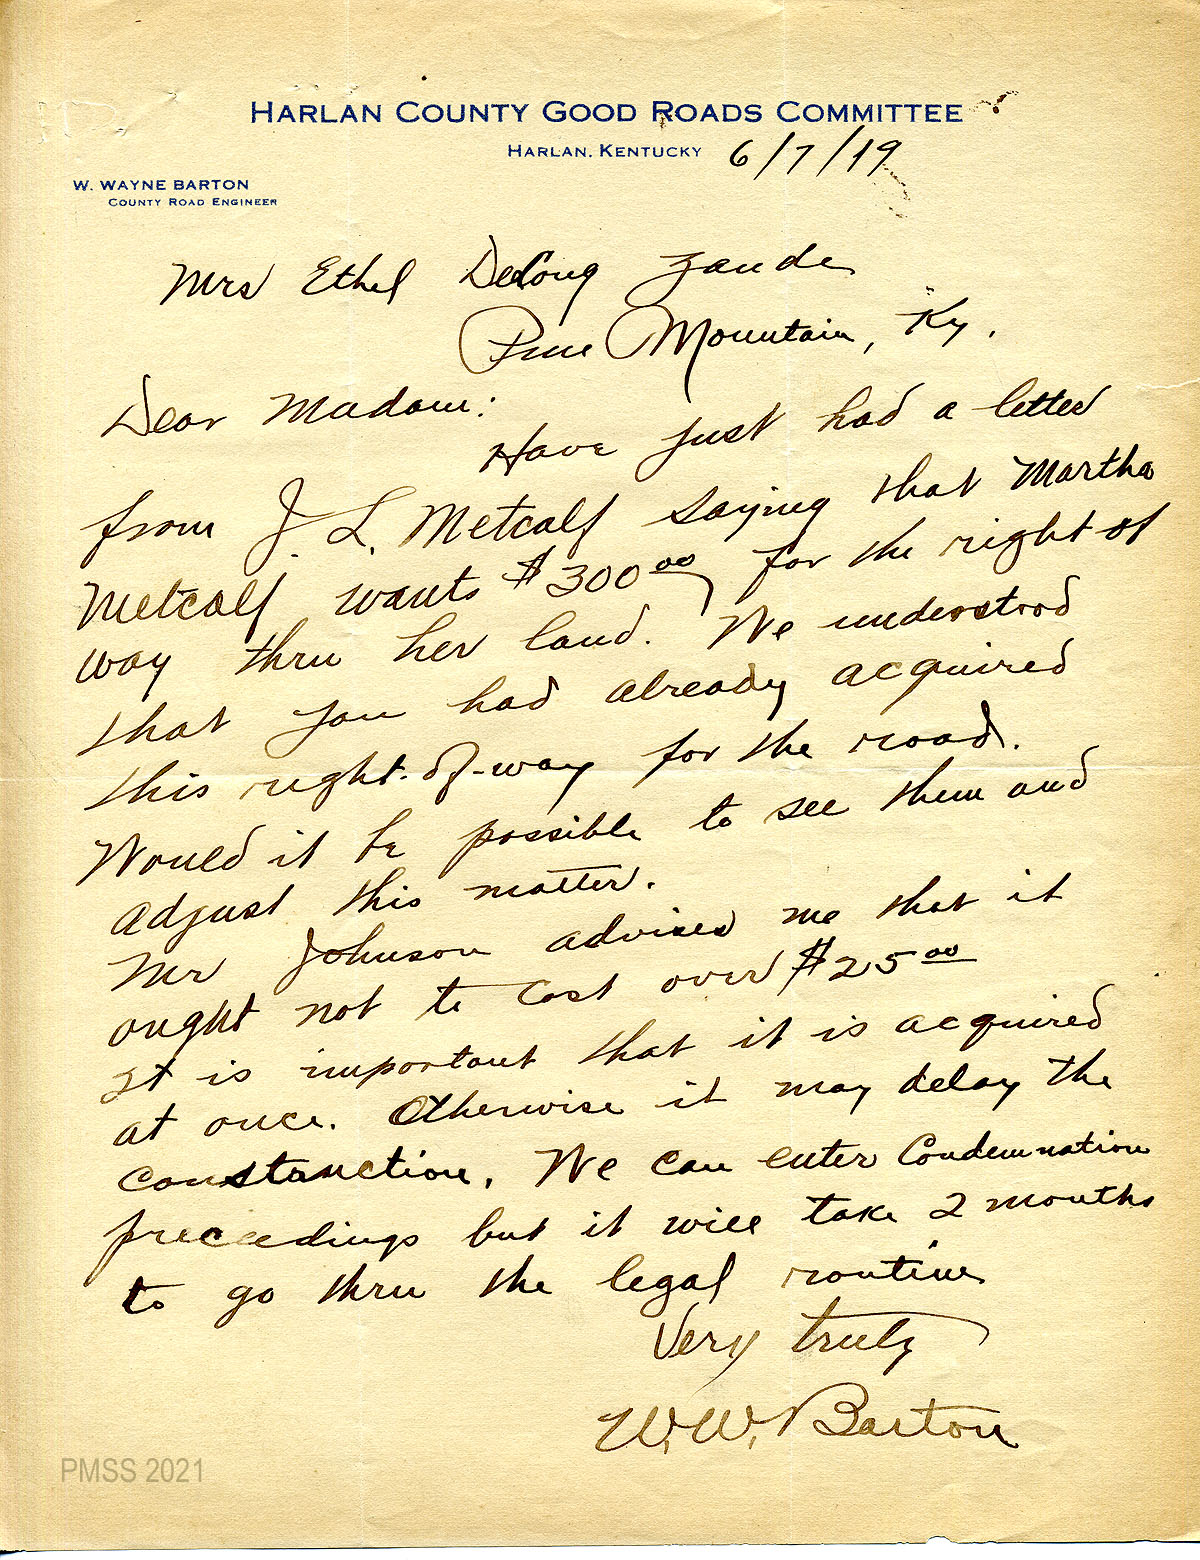 HARLAN COUNTY GOOD ROADS COMMITTEE
HARLAN, KENTUCKY 6/7/19
W. WAYNE BARTON
COUNTY ROAD ENGINEER
Mrs Ethel DeLong Zande
Pine Mountain, Ky.
Dear Madam:
Have just had a letter
from J. L. Metcalf saying that Martha
Metcalf wants $300.00, for the right of
way thru her land. We understood
that you had already acquired
this right-of-way for the road.
Would it be possible to see them and
adjust this matter.
Mr Johnson advises me that it
ought not to cost over $25.00
It is important that it is acquired
at once. Otherwise it may delay the
construction. We can enter Condemnation
preceedings but it will take 2 months
to go thru the legal routine
Very truly
W. W. Barton
PMSS 2021